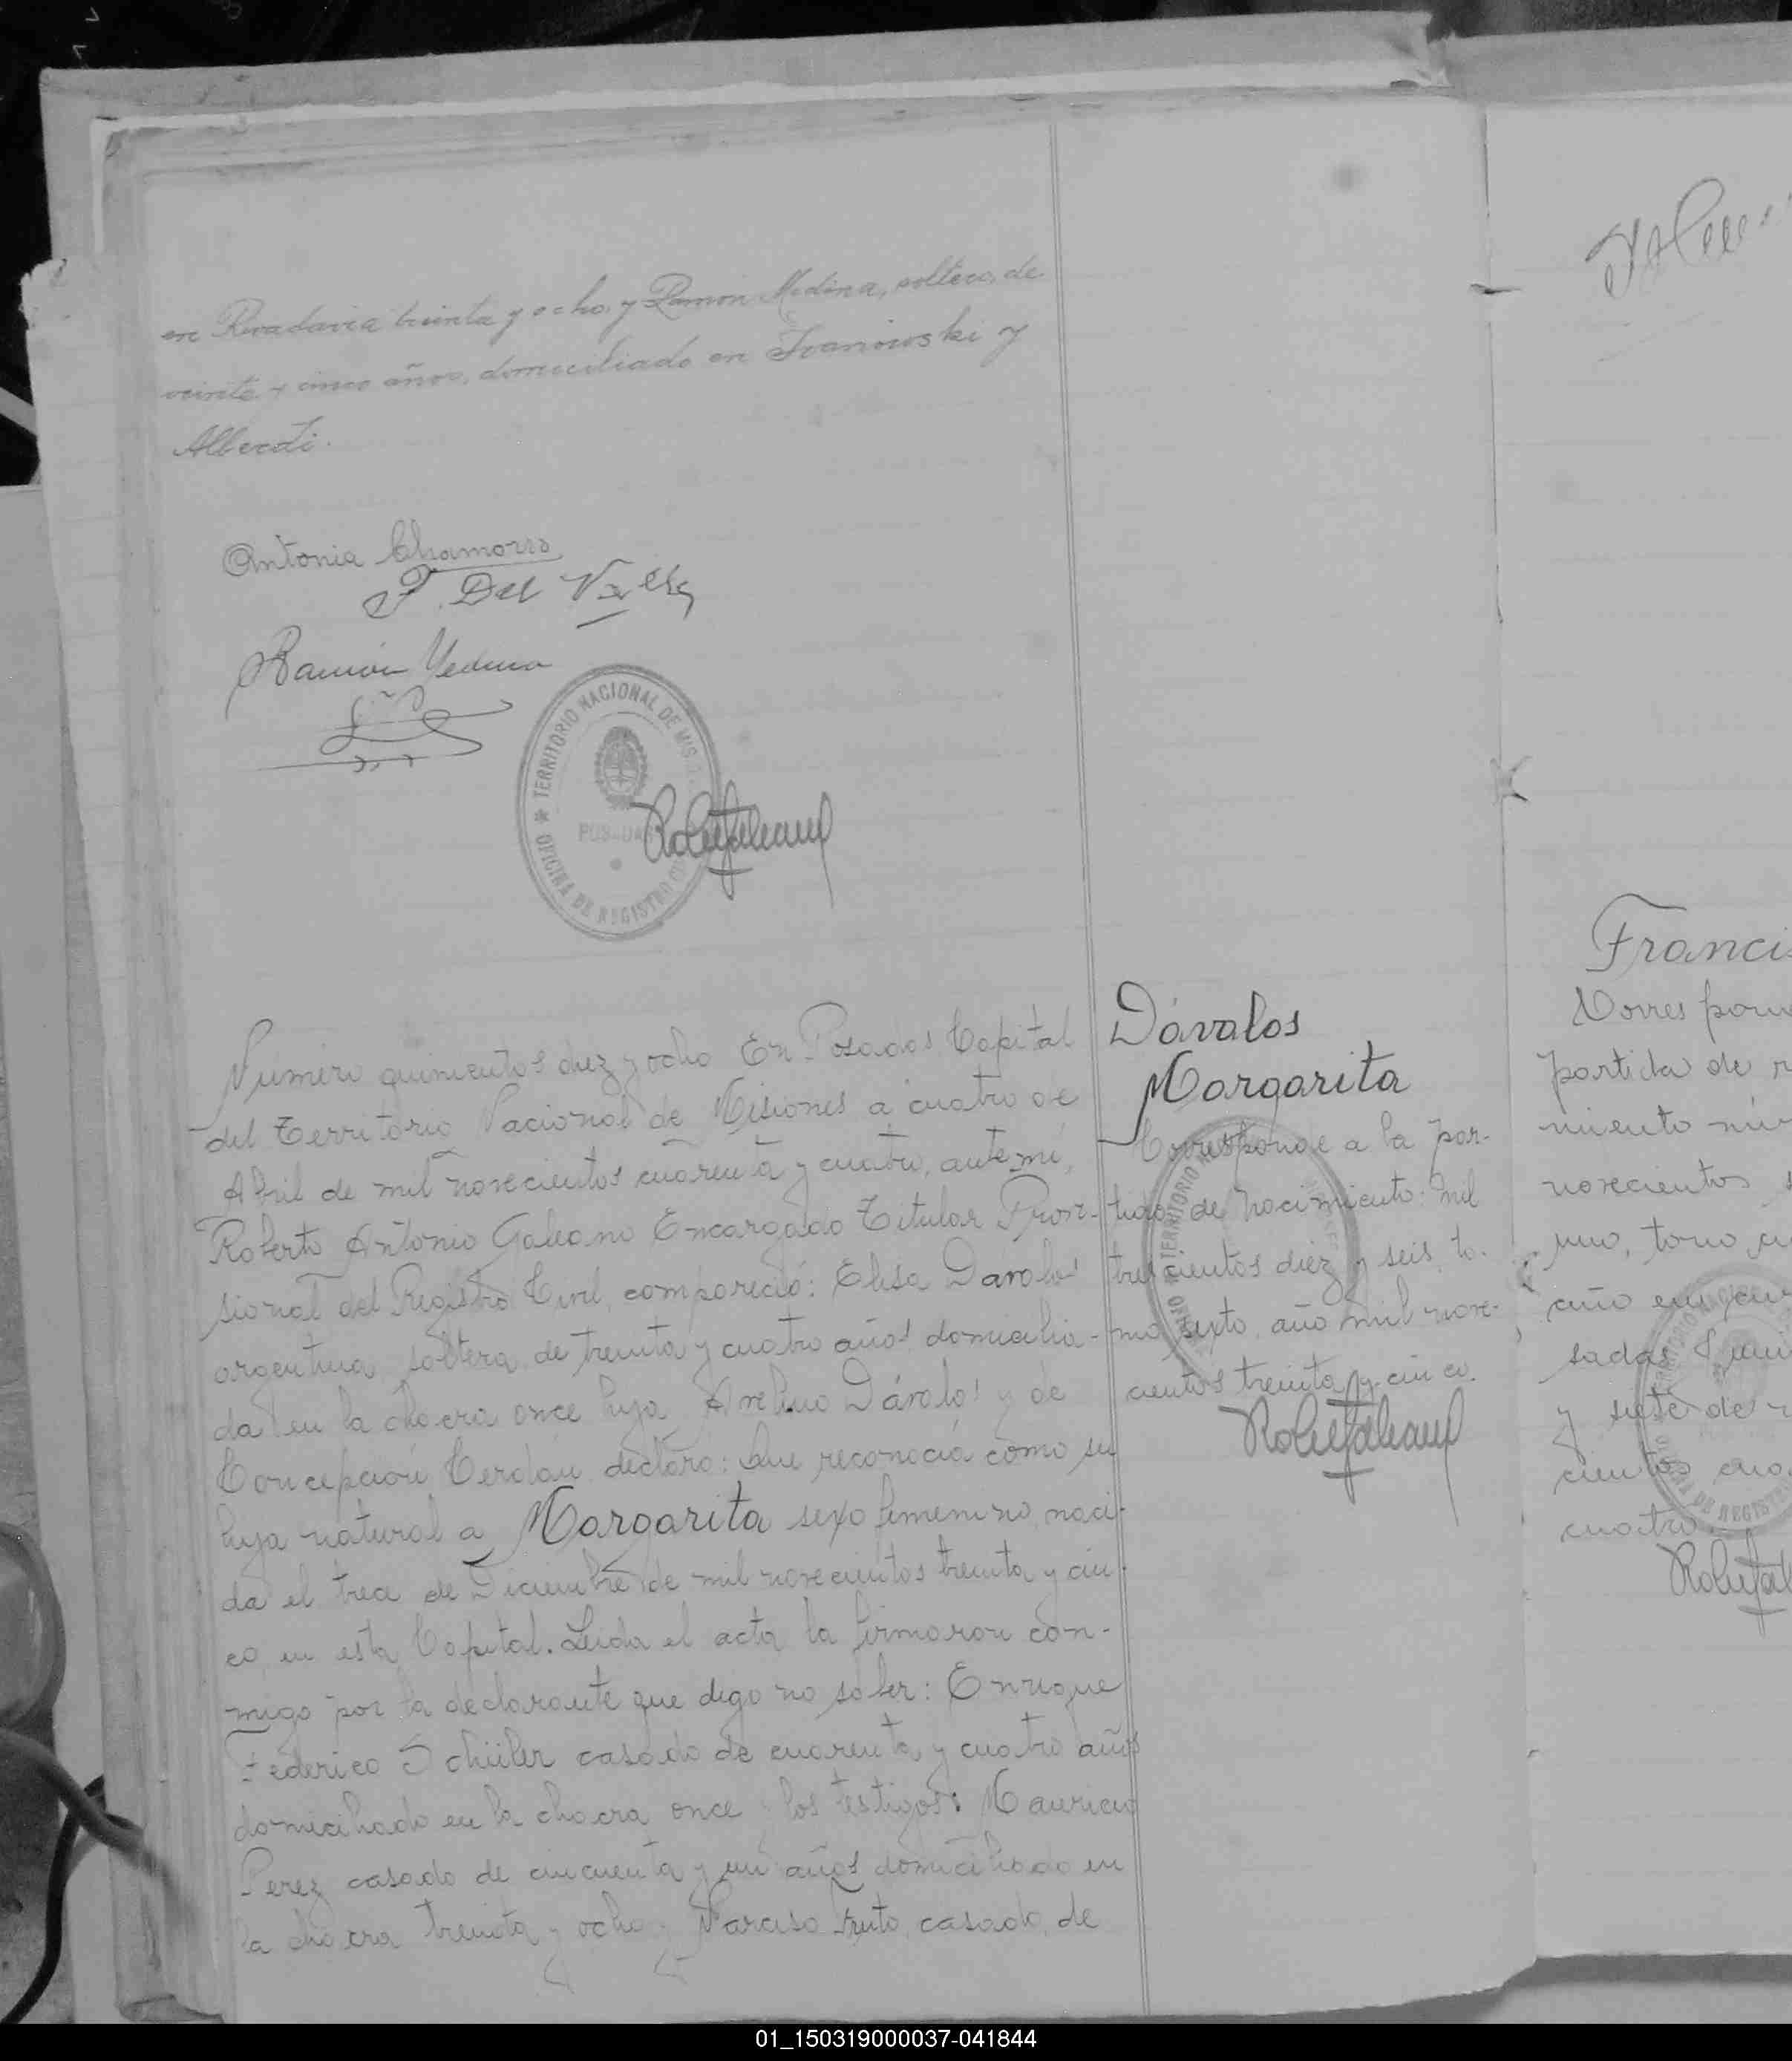 en Rivadavia treinta y ocho y Ramon Medina, soltero, de
veinte y cinco años, domiciliado en Ivanowski y
Alberdi.
Antonia Chamorro
F. Del Valle
Ramón Medina
TERRITORIO NACIONAL DE MIS
POSADAS
OFICINA DE REGISTRO
Numero quinientos diez y ocho En Posadas Capital
del Territorio Nacional de Misiones a cuatro de
Abril de mil novecientos cuarenta y cuatro, ante mi,
Roberto Antonio Galeano Encargado Titular Provi-
sional del Registro Civil, compareció: Elisa Davalos
argentina, soltera, de treinta y cuatro años domicilia-
da en la chacra once hija Avelino Dávalos y de
Concepción Cerdán declaro: Que reconocia como su
hija natural a Margarita sexo femenino, naci-
da el trece de Diciembre de mil novecientos treinta y cin-
co, en esta Capital. Leida el acta la firmaron con-
migo por la declarante que digo no saber: Enrique
Federico Schüler casado de cuarenta y cuatro años
domiciliado en la chacra once y los testigos: Mauricio
Perez casado de cincuenta y un años domiciliado en
la chacra treinta y ocho y Narciso Fruto, casado, de
Dávalos
Margarita
Corresponde a la par-
tida de nacimiento mil
trescientos diez y seis, to-
mo sexto, año mil nove-
cientos treinta y cinco.
TERRITORIO
Franci
Corres pon
partida de n
miento nú
novecientos
uno, tomo
año en
sadas
y siete de
cientos cua
cuatro.
DE REGIST
01_150319000037-041844